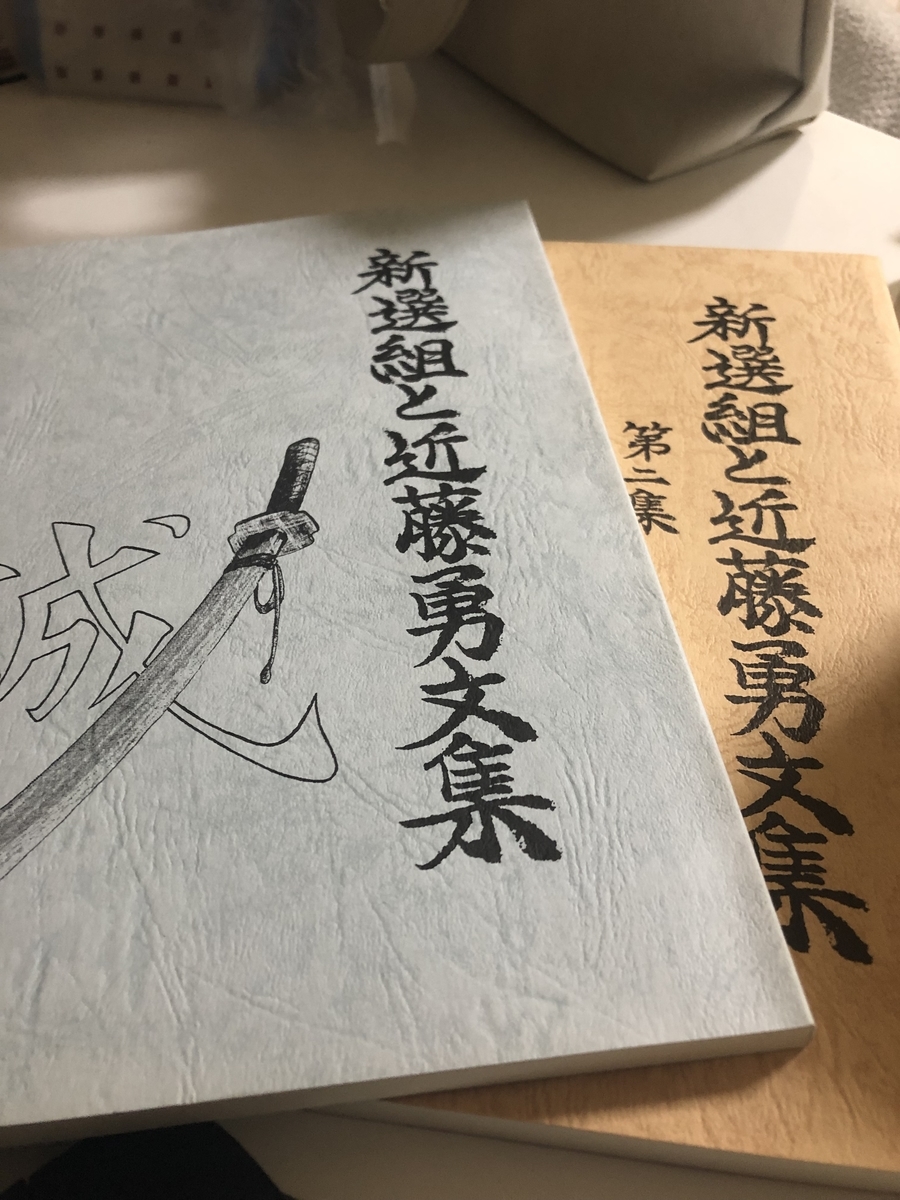 新選組と近藤勇文集
誠
新選組と近藤勇文集
第二集